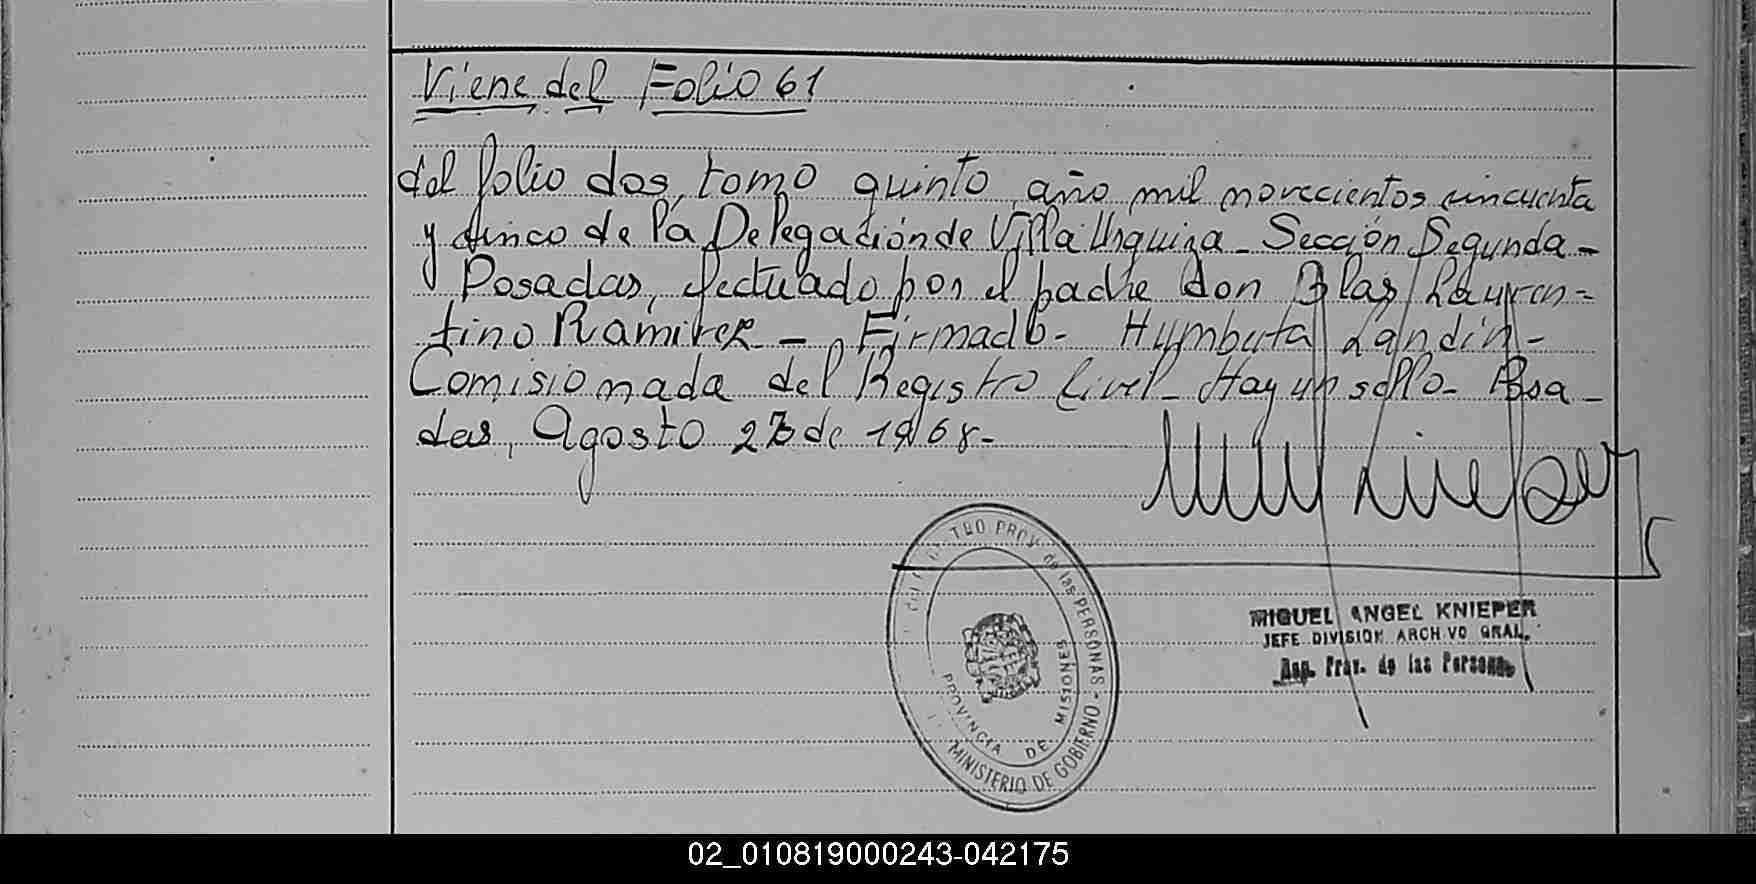 Viene del Folio 61
del folio dos, tomo quinto, año mil novecientos cincuenta
y cinco de la Delegación de Villa Urquiza - Sección Segunda -
Posadas, efectuado por el padre don Blas Lauren=
tino Ramirez - Firmado - Humberta Landin -
Comisionada del Registro Civil - Hay un sello - Posa-
das, Agosto 27 de 1968-
TRO PROV. de las PERSONAS - MINISTERIO DE GOBIERNO
PROVINCIA DE MISIONES
MIGUEL ANGEL KNIEPER
JEFE DIVISION ARCHIVO GRAL.
Prov. de las Personas
02_010819000243-042175